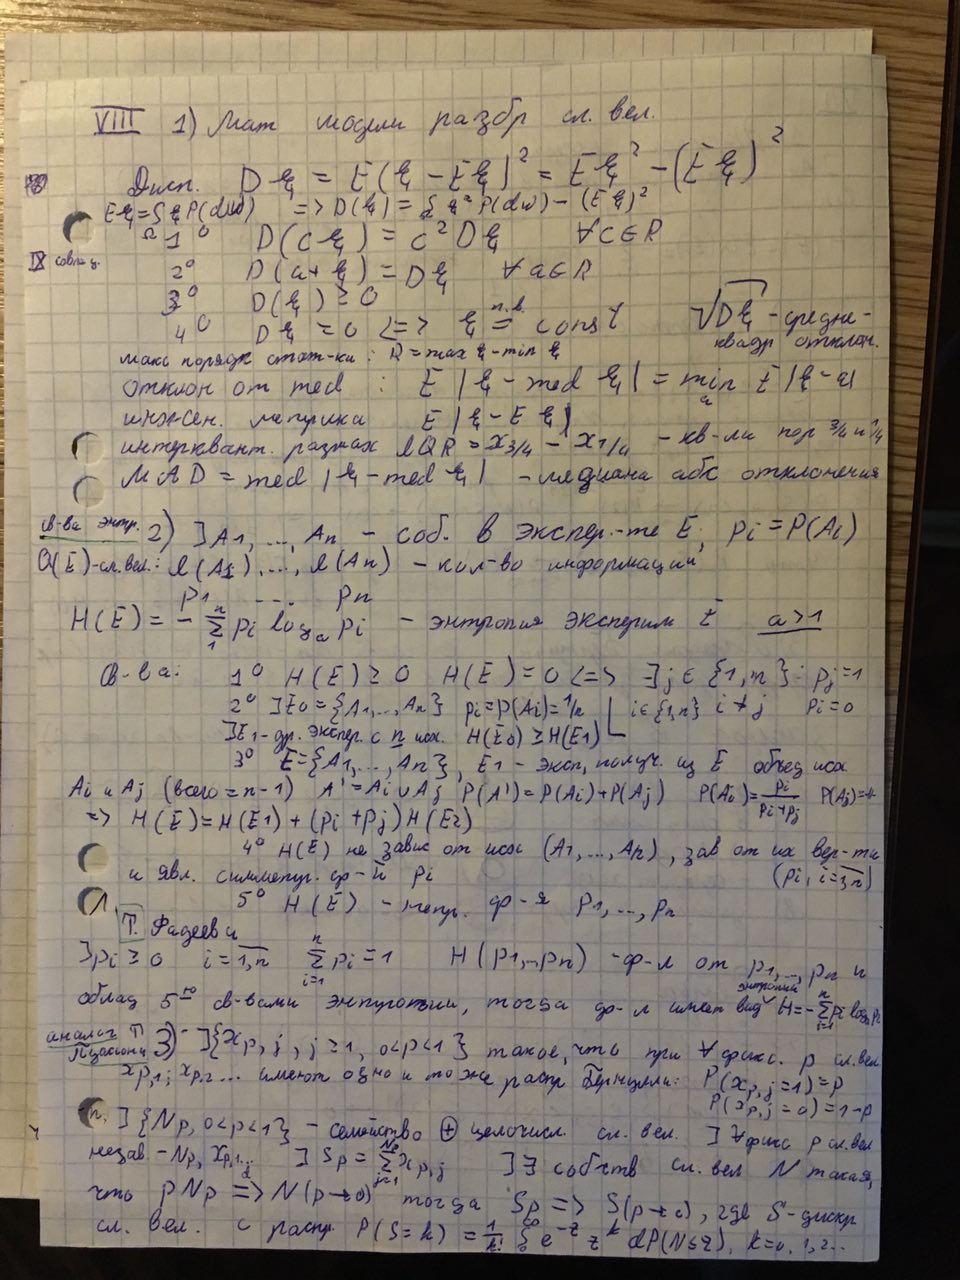 VIII 1) Мат модели разбр сл. вел.
Дисп. Dξ = E(ξ - Eξ)² = Eξ² - (Eξ)²
Eξ = ∫ξP(dω) => D(ξ) = ∫ξ²P(dω) - (Eξ)²
Ω 1° D(cξ) = c²Dξ ∀c∈R
IX совпад. 2° D(a+ξ) = Dξ ∀a∈R
3° D(ξ) ≥ 0
4° Dξ = 0 <=> ξ п.в. = const √Dξ - средне-
квадр отклон.
макс порядк стат-ки: R = max ξ - min ξ
отклон от med : E|ξ - med ξ| = min a E|ξ - a|
инжен. метрика E|ξ - Eξ|
интерквант. размах IQR = x3/4 - x1/4 - кв-ли пор 3/4 и 1/4
MAD = med |ξ - med ξ| - медиана абс отклонения
св-ва энтр. 2) ]A1, ..., An - соб. в экспер-те E, pi = P(Ai)
(E)-сл. вел.: I(A1), ..., I(An) - кол-во информации
p1 ... pn
H(E) = - Σ₁ⁿ pi logₐ pi - энтропия эксперим E a>1
Св-ва: 1° H(E) ≥ 0 H(E) = 0 <=> ∃j∈{1,n}: pj = 1
2° ]E0 = {A1, ..., An} pi = P(Ai) = 1/n i∈{1,n} i≠j pi = 0
]E1 - др. экспер. с n исх. H(E0) ≥ H(E1)
3° E = {A1, ..., An}, E1 - эксп, получ. из E объед исх
Ai и Aj (всего = n-1) A' = Ai∪Aj P(A') = P(Ai) + P(Aj) P(Ai) = pi/(pi+pj) P(Aj) =
=> H(E) = H(E1) + (pi + pj) H(E2)
4° H(E) не завис от исх (A1, ..., An), зав от их вер-ти
и явл. симметр. ф-й pi (pi, i=1,n)
5° H(E) - непр. ф-я p1, ..., pn
Л. Т. Фадеева
]pi ≥ 0 i = 1,n Σ i=1 n pi = 1 H(p1,..pn) - ф-л от p1, ..., pn и
облад 5ю св-вами энтропии, тогда ф-л имеет вид энтропии H = - Σ i=1 n pi logₐ pi
аналог Т Пуассона 3) ]{xp,j, j≥1, 0<p<1} такое, что при ∀ фикс. p сл. вел
xp,1; xp,2 ... имеют одно и то же распр Бернулли: P(xp,j = 1) = p
P(xp,j = 0) = 1-p
п. ]{Np, 0<p<1} - семейство ⊕ целочисл. сл. вел. ] ∀ фикс p сл. вел
незав - Np, xp,1... ] Sp = Σ j=1 Np xp,j ]∃ собств сл. вел N такая,
что pNp d=> N (p→0) тогда Sp => S(p→0), где S - дискр
сл. вел. с распр P(S=k) = 1/k! ∫₀^∞ e^-z z^k dP(N≤z), k=0,1,2...